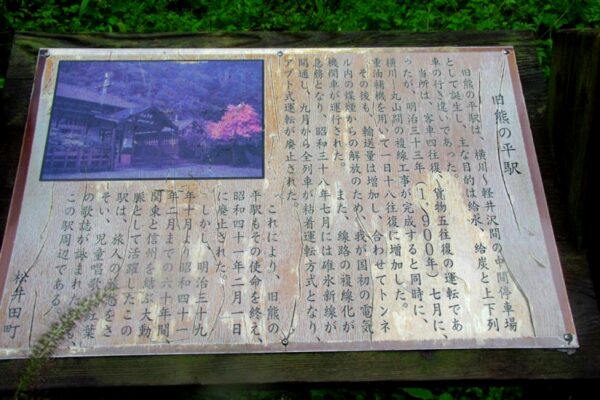 旧熊の平駅
旧熊の平駅は、横川〜軽井沢間の中間停車場
として誕生し、主な目的は給水、給炭と上下列
車の行き違いであった。
当所は、客車四往復、貨物五往復の運転であ
ったが、明治三十三年(1,900年)七月に、
横川〜丸山間の複線工事が完成すると同時に、
重油補機を用いて一日十八往復に増加した。
その後も、輸送量は増加し、合わせてトンネ
ル内の煤煙からの解放のため、我が国初の電気
機関車が運行された。また、線路の複線化が
急務となり、昭和三十八年七月には碓氷新線が
開通し、九月から全列車が粘着運転方式となり、
アプト式運転が廃止された。
これにより、旧熊の
平駅もその使命を終え、
昭和四十一年二月一日
に廃止された。
しかし、明治三十九
年十月より昭和四十一
年二月までの六十年間、
関東と信州を結ぶ大動
脈として活躍したこの
駅は、旅人の旅愁をさ
そい、児童唱歌「紅葉」
の歌詩が詠まれたのも
この駅周辺である。
松井田町